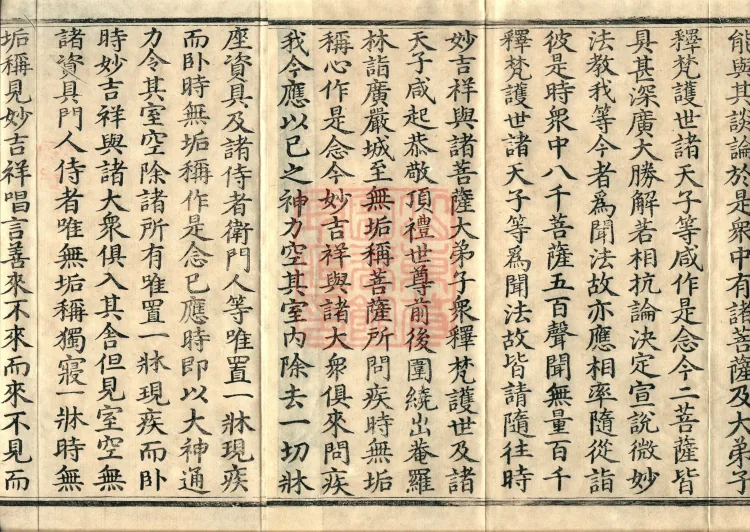 能與其談論於是衆中有諸菩薩及大弟子
釋梵護世諸天子等咸作是念今二菩薩皆
具甚深廣大勝解若相抗論決定宣說微妙
法教我等今者爲聞法故亦應相率隨從詣
彼是時衆中八千菩薩五百聲聞無量百千
釋梵護世諸天子等爲聞法故皆請隨往時
妙吉祥與諸菩薩大弟子衆釋梵護世及諸
天子咸起恭敬頂禮世尊前後圍繞出菴羅
林詣廣嚴城至無垢稱菩薩所問疾時無垢
稱心作是念今妙吉祥與諸大衆俱來問疾
我今應以己之神力空其室內除去一切牀
座資具及諸侍者衛門人等唯置一牀現疾
而卧時無垢稱作是念已應時即以大神通
力令其室空除諸所有唯置一牀現疾而卧
時妙吉祥與諸大衆俱入其舍但見室空無
諸資具門人侍者唯無垢稱獨寢一牀時無
垢稱見妙吉祥唱言善來不來而來不見而